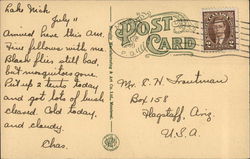 Lake Mick
July 11
Arrived here this Am.
Fine fellows with me.
Black flies still bad,
but mosquitoes gone.
Put up 2 tents today
and got lots of brush
cleared. Cold today,
and cloudy.
Chas.
POST
CARD
Mr. E. H. Trautman
Box 158
Flagstaff, Ariz
U.S.A.